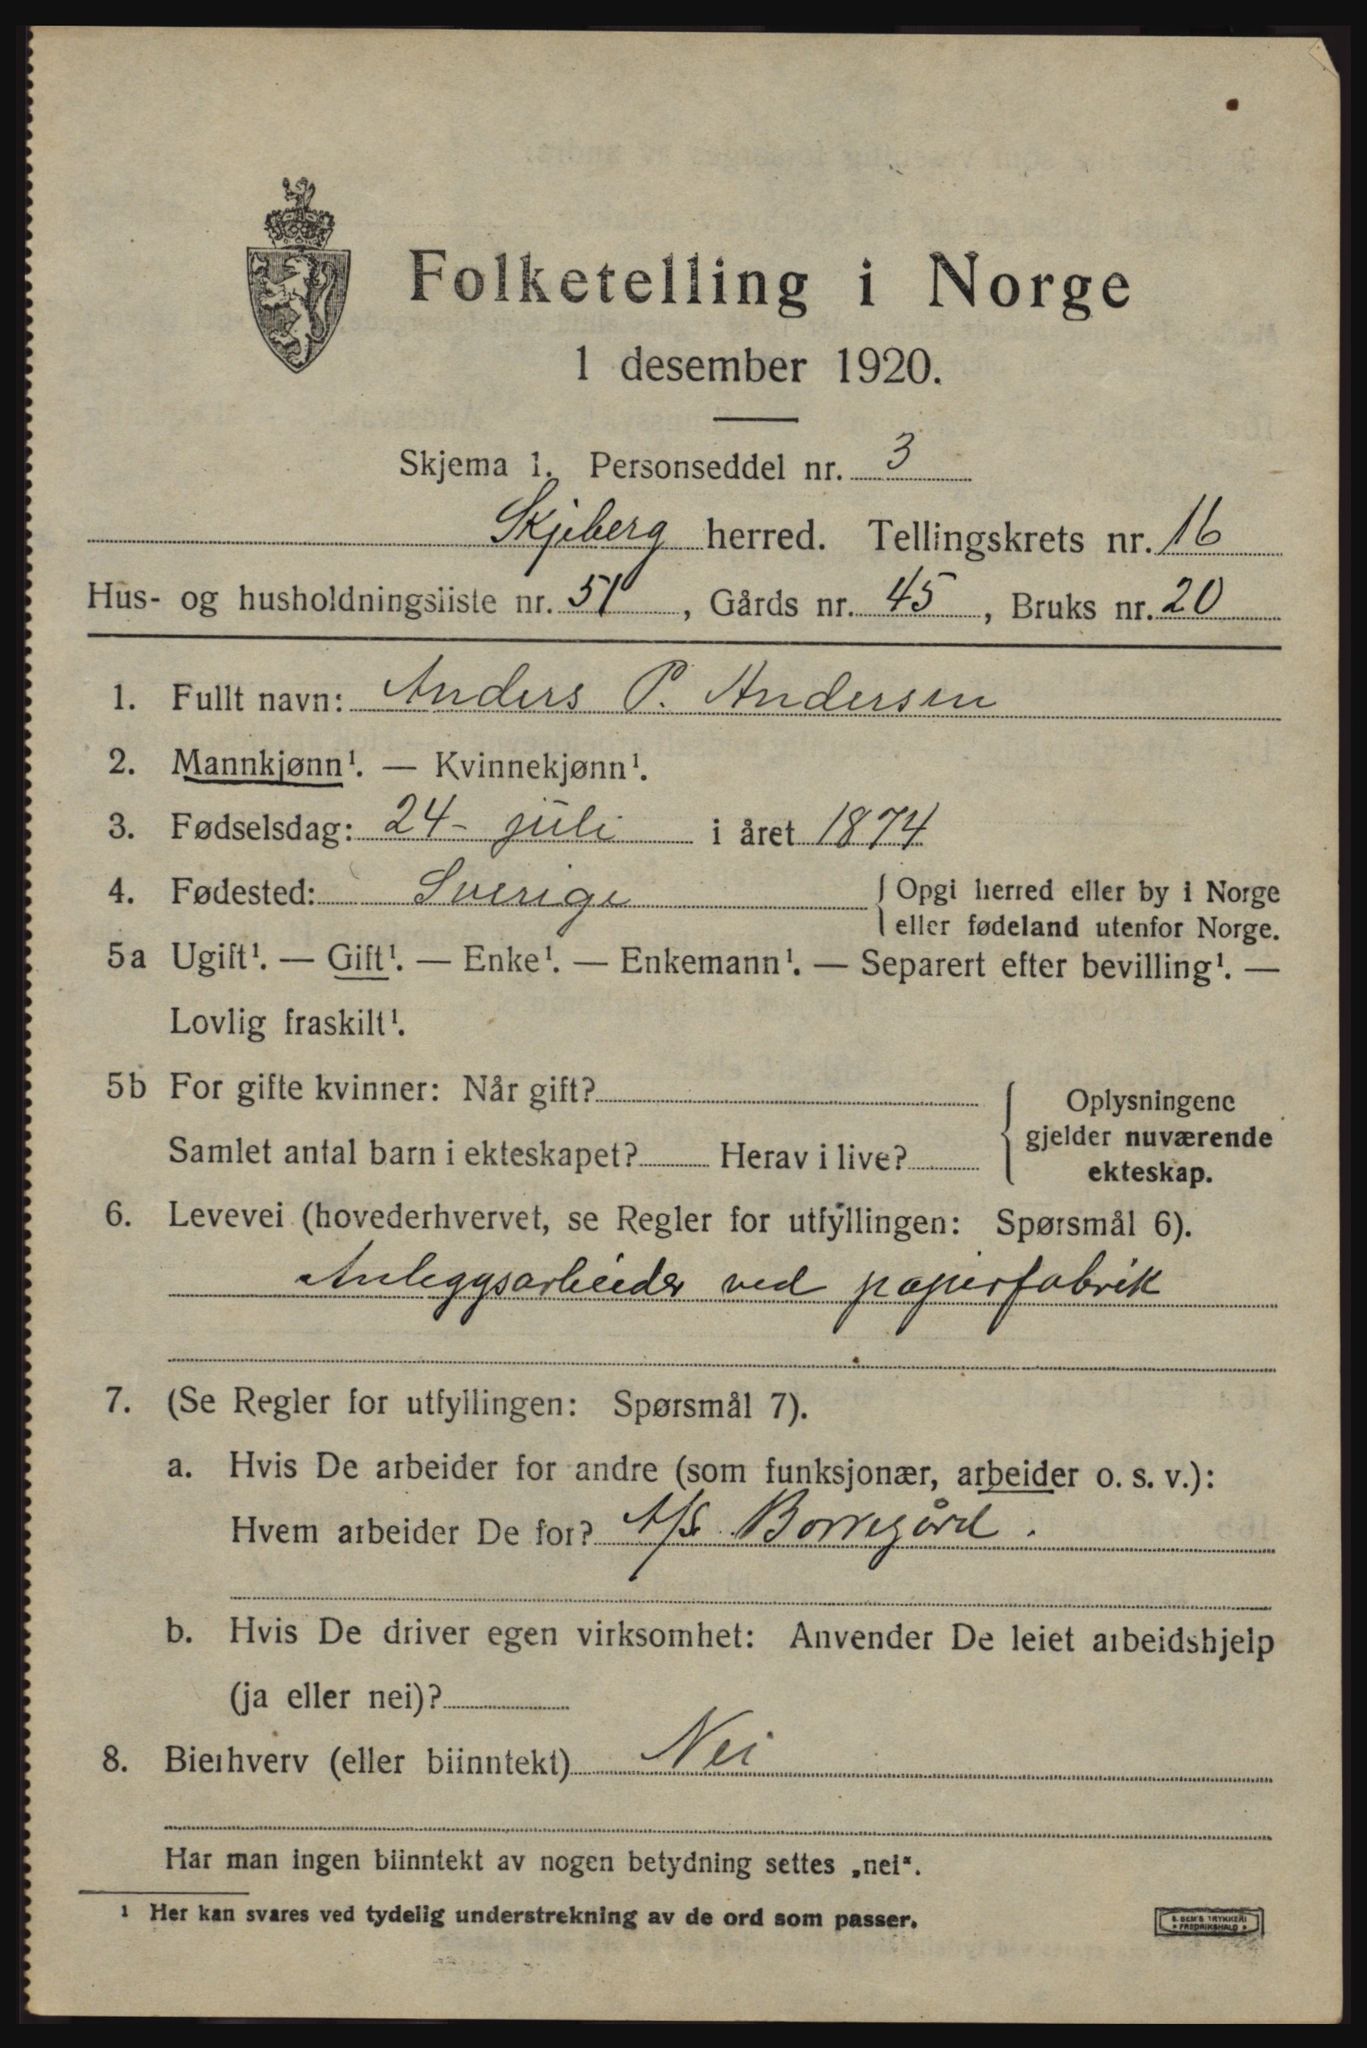 Folketelling i Norge
1 desember 1920.
Skjema 1. Personseddel nr. 3
Skjeberg herred. Tellingskrets nr. 16
Hus- og husholdningsliste nr. 51, Gårds nr. 45, Bruks nr. 20
1. Fullt navn: Anders P. Andersen
2. Mannkjønn¹. — Kvinnekjønn¹.
3. Fødselsdag: 24- juli i året 1874
4. Fødested: Sverige { Opgi herred eller by i Norge
eller fødeland utenfor Norge.
5a Ugift¹. — Gift¹. — Enke¹. — Enkemann¹. — Separert efter bevilling¹. —
Lovlig fraskilt¹.
5b For gifte kvinner: Når gift? { Oplysningene
gjelder nuværende
Samlet antal barn i ekteskapet? Herav i live?
ekteskap.
6. Levevei (hovederhvervet, se Regler for utfyllingen: Spørsmål 6).
Anleggsarbeider ved papirfabrik
7. (Se Regler for utfyllingen: Spørsmål 7).
a. Hvis De arbeider for andre (som funksjonær, arbeider o. s. v.):
Hvem arbeider De for? A/S. Borregård.
b. Hvis De driver egen virksomhet: Anvender De leiet arbeidshjelp
(ja eller nei)?
8. Bierhverv (eller biinntekt) Nei
Har man ingen biinntekt av nogen betydning settes „nei“.
¹ Her kan svares ved tydelig understrekning av de ord som passer.
E. SEM'S TRYKKERI
• FREDRIKSHALD •